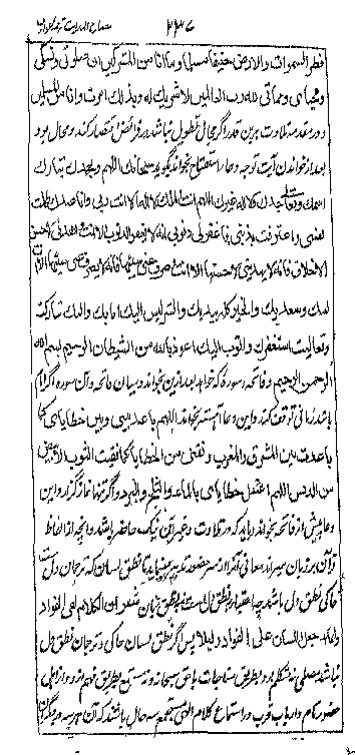 مصباح الهدایت
فطر السموات والارض حنیفا مسلما وما انا من المشرکین ان صلوتی ونسکی
ومحیای ومماتی لله رب العالمین لا شریک له وبذلک امرت وانا من المسلمین
ودر مقدمه تلاوت برین قدر اگر مجال تطویل نباشد بر فرائض اقتصار کند و مجال بود
بعد از خواندن آیت توجه دعاء استفتاح بخواند بگوید سبحانک اللهم وبحمدک تبارک
اسمک وتعالی جدک ولا اله غیرک اللهم انت الملک لا اله الا انت ربی وانا عبدک ظلمت
نفسی واعترفت بذنبی فاغفر لی ذنوبی انه لا یغفر الذنوب الا انت واهدنی لاحسن
الاخلاق فانه لا یهدی لاحسنها الا انت واصرف عنی سیئها فانه لا یصرف عنی سیئها الا انت
لبیک وسعدیک والخیر کله بیدیک والشر لیس الیک انا بک والیک تبارکت
وتعالیت استغفرک واتوب الیک اعوذ بالله من الشیطان الرجیم بسم الله
الرحمن الرحیم و فاتحه و سوره که خواهد بعد ازین بخواند و میان فاتحه و آن سوره اگر امام
باشد زمانی توقف کند و این دعا آهسته بخواند اللهم باعد بینی وبین خطایای کما
باعدت بین المشرق والمغرب ونقنی من الخطایا کما ینقی الثوب الابیض
من الدنس اللهم اغسل خطایای بالماء والثلج والبرد و اگر تنها نماز گزارد این
دعا پیش از فاتحه بخواند و باید که در تلاوت و غیر آن نیک حاضر باشد و آنچه از الفاظ
قرآن بر زبان میراند معانی آنرا از سر حضور تدبر
حاکی نطق دل باشد چه اعتبار نطق دل است و نطق زبان شعر ان الکلام لفی الفواد
وانما جعل اللسان علی الفواد دلیلا پس اگر نطق لسان حاکی و ترجمان نطق دل
نباشد مصلی نه متکلم بود بطریق مناجات با حق سبحانه و نه مستمع بطریق فهم ازو و اگر اهل
حضور تام و ارباب قرب در استماع کلام الهی